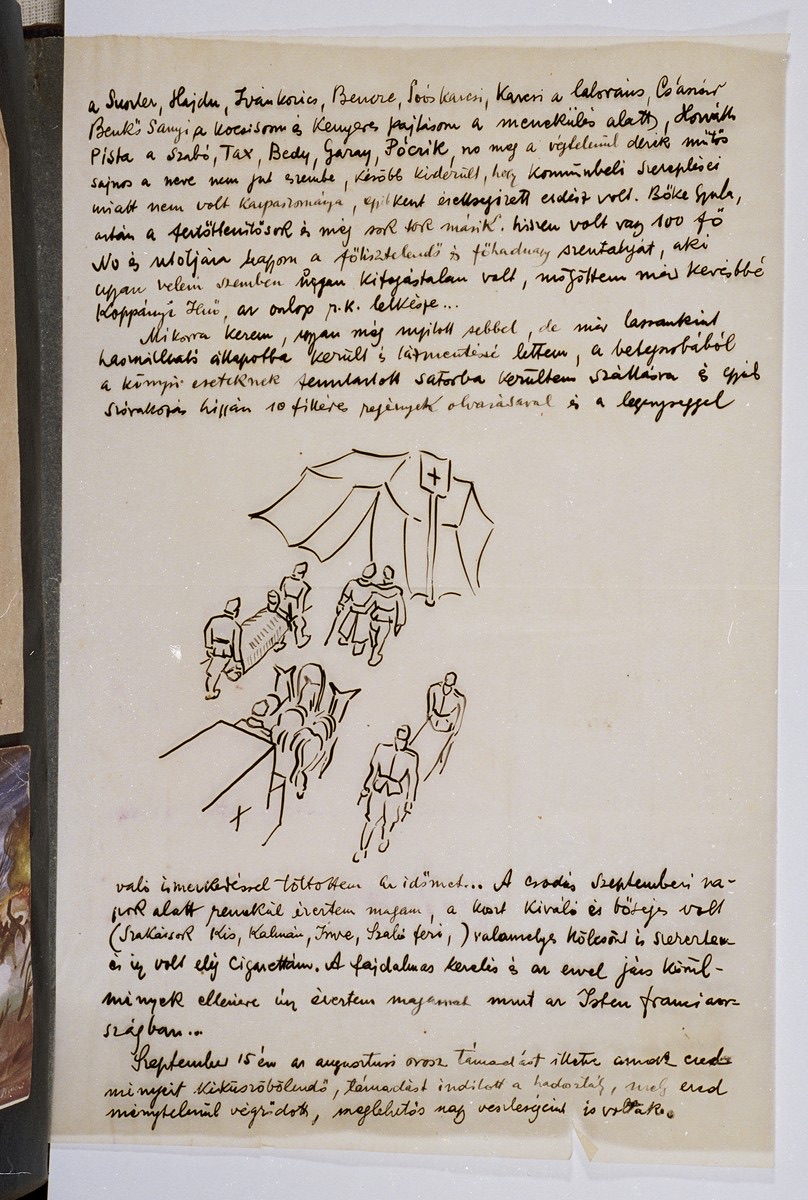 a Suster, Hajdu, Ivánkovics, Bencze, Soós Karcsi, Karcsi a laloráns, Császár
Benkő Sanyi (a kocsisom és kenyeres pajtásom a menekülés alatt), Horváth
Pista a szabó, Tax, Bedy, Garay, Póczik, no meg a végtelenül derék műtős
sajnos a neve nem jut eszembe, később kiderült, hogy kommünbeli szereplései
miatt nem volt karpaszományos, egyébként érettségizett erdész volt. Bőke Gyula,
aztán a fertőtlenítősök és még sok sok másik. hiszen volt vagy 100 fő
No és utoljára hagyom a főtisztelendő és főhadnagy szentatyát, aki
ugyan velem szemben úggan kifogástalan volt, mögöttem már kevésbbé
Koppányi Jenő, az oszlop r.k. lelkésze...
Mikorra kezem, ugyan még nyitott sebbel, de már lassankint
használható állapotba került és lázmentessé lettem, a betegszobából
a könnyű eseteknek fenntartott sátorba kerültem szállásra és egyéb
szórakozás híján 10 filléres regények olvasásával és a legénységgel
való ismerkedéssel töltöttem az időmet... A csodás szeptemberi na-
pok alatt remekül éreztem magam, a koszt kiváló és bőséges volt
(Szakácsok Kis, Kálmán, Imre, Szabó Feri,) valamelyes kölcsönt is szereztem
és így volt elég cigarettám. A fájdalmas kezelés és az ezzel járó körül-
mények ellenére úgy éreztem magamat mint az Isten franciaor-
szágban...
Szeptember 15 én az augusztusi orosz támadást illetve annak ered-
ményeit kiküszöbölendő, támadást indított a hadosztály, mely ered
ménytelenül végződött, meglehetős nagy veszteségeink is voltak.